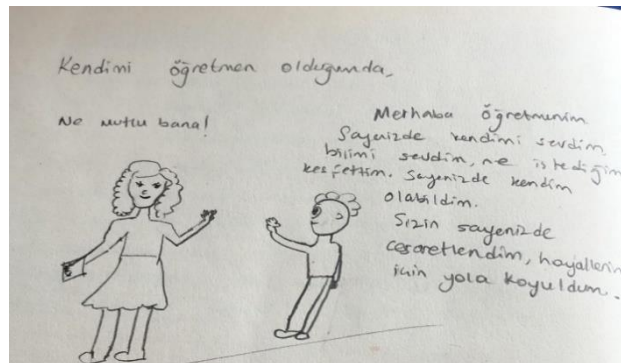 Kendimi öğretmen olduğunda,
Ne mutlu bana!
Merhaba öğretmenim
Sayenizde kendimi sevdim,
bilimi sevdim, ne istediğim
keşfettim. Sayenizde kendim
olabildim.
Sizin sayenizde
cesaretlendim, hayallerim
için yola koyuldum.